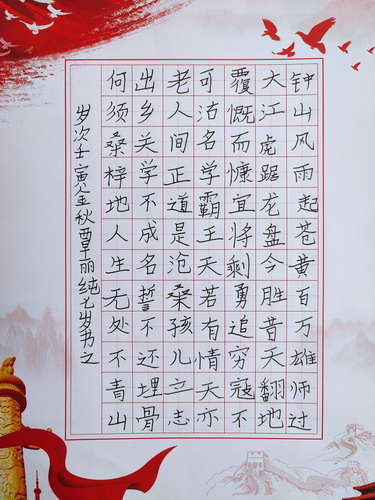 钟山风雨起苍黄百万雄师过
大江虎踞龙盘今胜昔天翻地
覆慨而慷宜将剩勇追穷寇不
可沽名学霸王天若有情天亦
老人间正道是沧桑孩儿立志
出乡关学不成名誓不还埋骨
何须桑梓地人生无处不青山
岁次壬寅金秋覃丽纯七岁书之